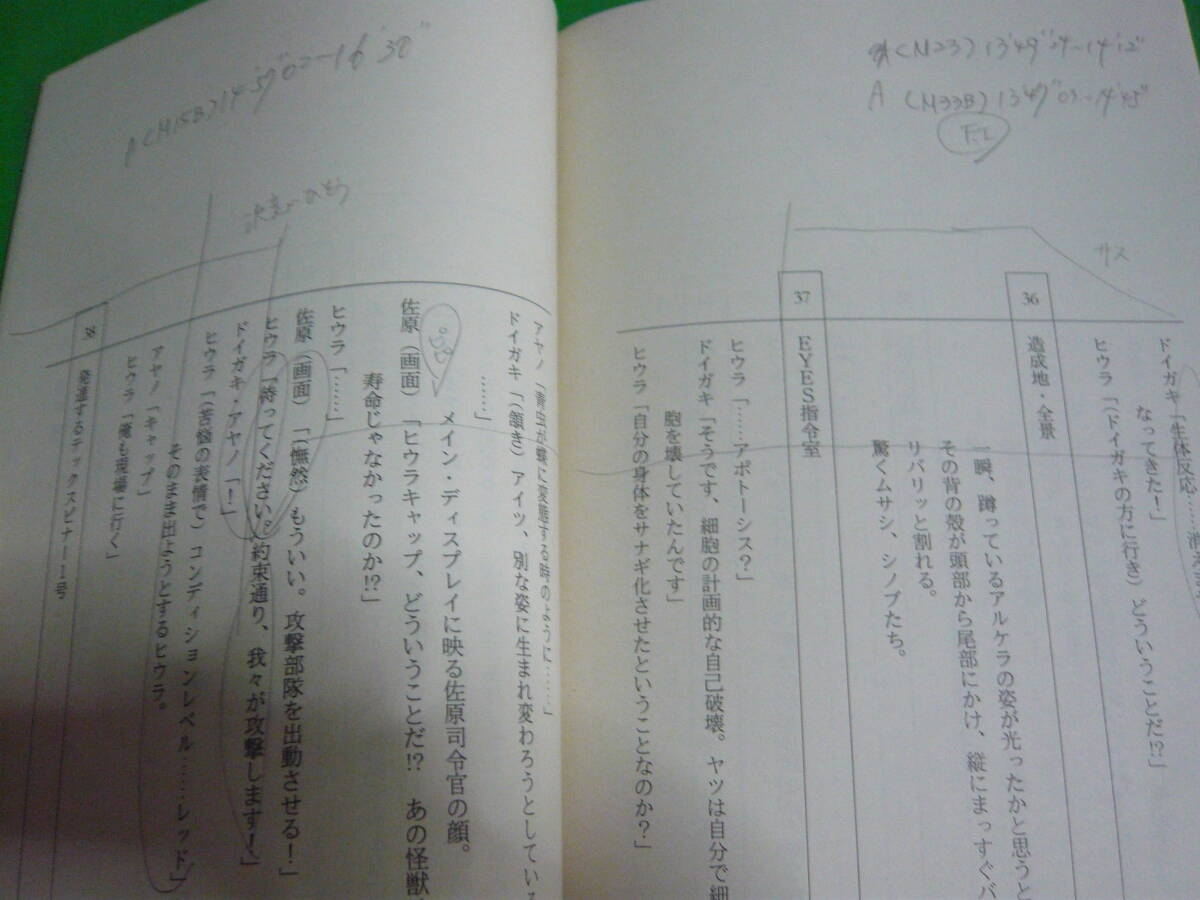 (M23) 13'49"
A (M33B) 13'49"03-14'45"
F.I.
サス
ドイガキ「生体反応……
なってきた！」
ヒウラ「（ドイガキの方に行き）どういうことだ!?」
36 造成地・全景
一瞬、蹲っているアルケラの姿が光ったかと思うと
その背の殻が頭部から尾部にかけ、縦にまっすぐバ
リバリッと割れる。
驚くムサシ、シノブたち。
37 EYES指令室
ヒウラ「……アポトーシス？」
ドイガキ「そうです、細胞の計画的な自己破壊。ヤツは自分で細
胞を壊していたんです」
ヒウラ「自分の身体をサナギ化させたということなのか？」
A (M15B) 14'57"02-16'30"
アヤノ「青虫が蝶に変態する時のように……」
ドイガキ「（頷き）アイツ、別な姿に生まれ変わろうとしている
……」
メイン・ディスプレイに映る佐原司令官の顔。
佐原（画面）「ヒウラキャップ、どういうことだ!? あの怪獣、
寿命じゃなかったのか!?」
ヒウラ「……」
佐原（画面）「（憮然）もういい。攻撃部隊を出動させる！」
ヒウラ「待ってください。約束通り、我々が攻撃します！」
ドイガキ・アヤノ「！」
ヒウラ「（苦悩の表情で）コンディションレベル……レッド」
そのまま出ようとするヒウラ。
アヤノ「キャップ」
ヒウラ「俺も現場に行く」
38 発進するテックスピナー1号